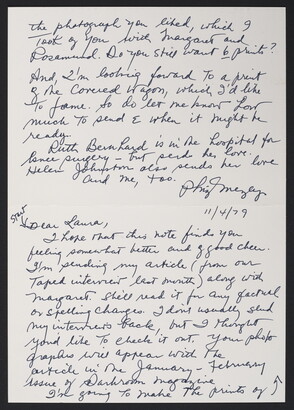 the photograph you liked, which I
took of you with Margaret and
Rosamund. Do you still want 6 prints?
And, I'm looking forward to a print
of the Covered Wagon, which I'd like
to frame. So do let me know how
much to send & when it might be
ready.
Ruth Bernhard is in the hospital for
knee surgery – but sends her love.
Helen Johnston also sends her love
and me, too.
Phiz Mezey
11/4/79
Start
Dear Laura,
I hope that this note finds you
feeling somewhat better and of good cheer.
I'm sending my article (from our
taped interview last month) along with
Margaret. She'll read it for any factual
or spelling changes. I don't usually send
my interviews back, but I thought
you'd like to check it out. Your photo
graphs will appear with the
article in the January - February
issue of Darkroom magazine
I'm going to make the prints of